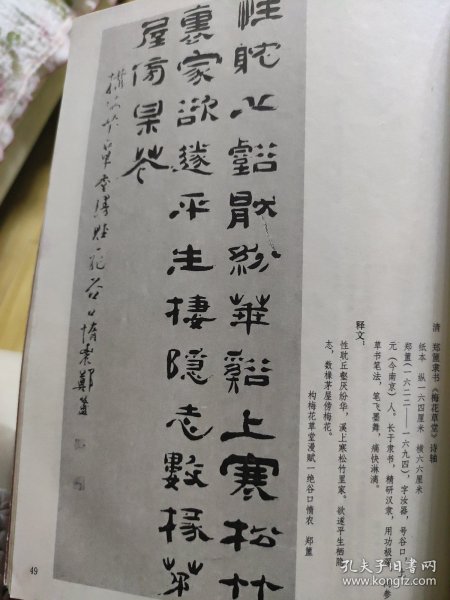 清 郑簠隶书《梅花草堂》诗轴
纸本 纵一六四厘米 横六六厘米
郑簠(一六二二——一六九四),字汝器,号谷口,
元(今南京)人。长于隶书,精研汉隶,用功极 参
草书笔法,笔飞墨舞,痛快淋漓。
释文:
性耽丘壑厌纷华,溪上寒松竹里家。欲遂平生栖隐
志,数椽茅屋傍梅花。
构梅花草堂漫赋一绝谷口惰农 郑簠
性耽丘壑厭紛華谿上寒松竹
裏家欲遂平生棲隱志數椽茅
屋傍呆花
構梅花草堂漫賦一絕谷口惰農鄭簠
49
孔夫子旧书网